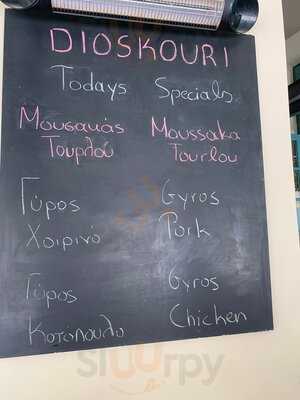 DIOSKOURI
Todays Specials
Μουσακάς Moussaka
Τουρλού Tourlou
Γύρος Gyros
Χοιρινό Pork
Γύρος Gyros
Κοτόπουλο Chicken
sluurpy